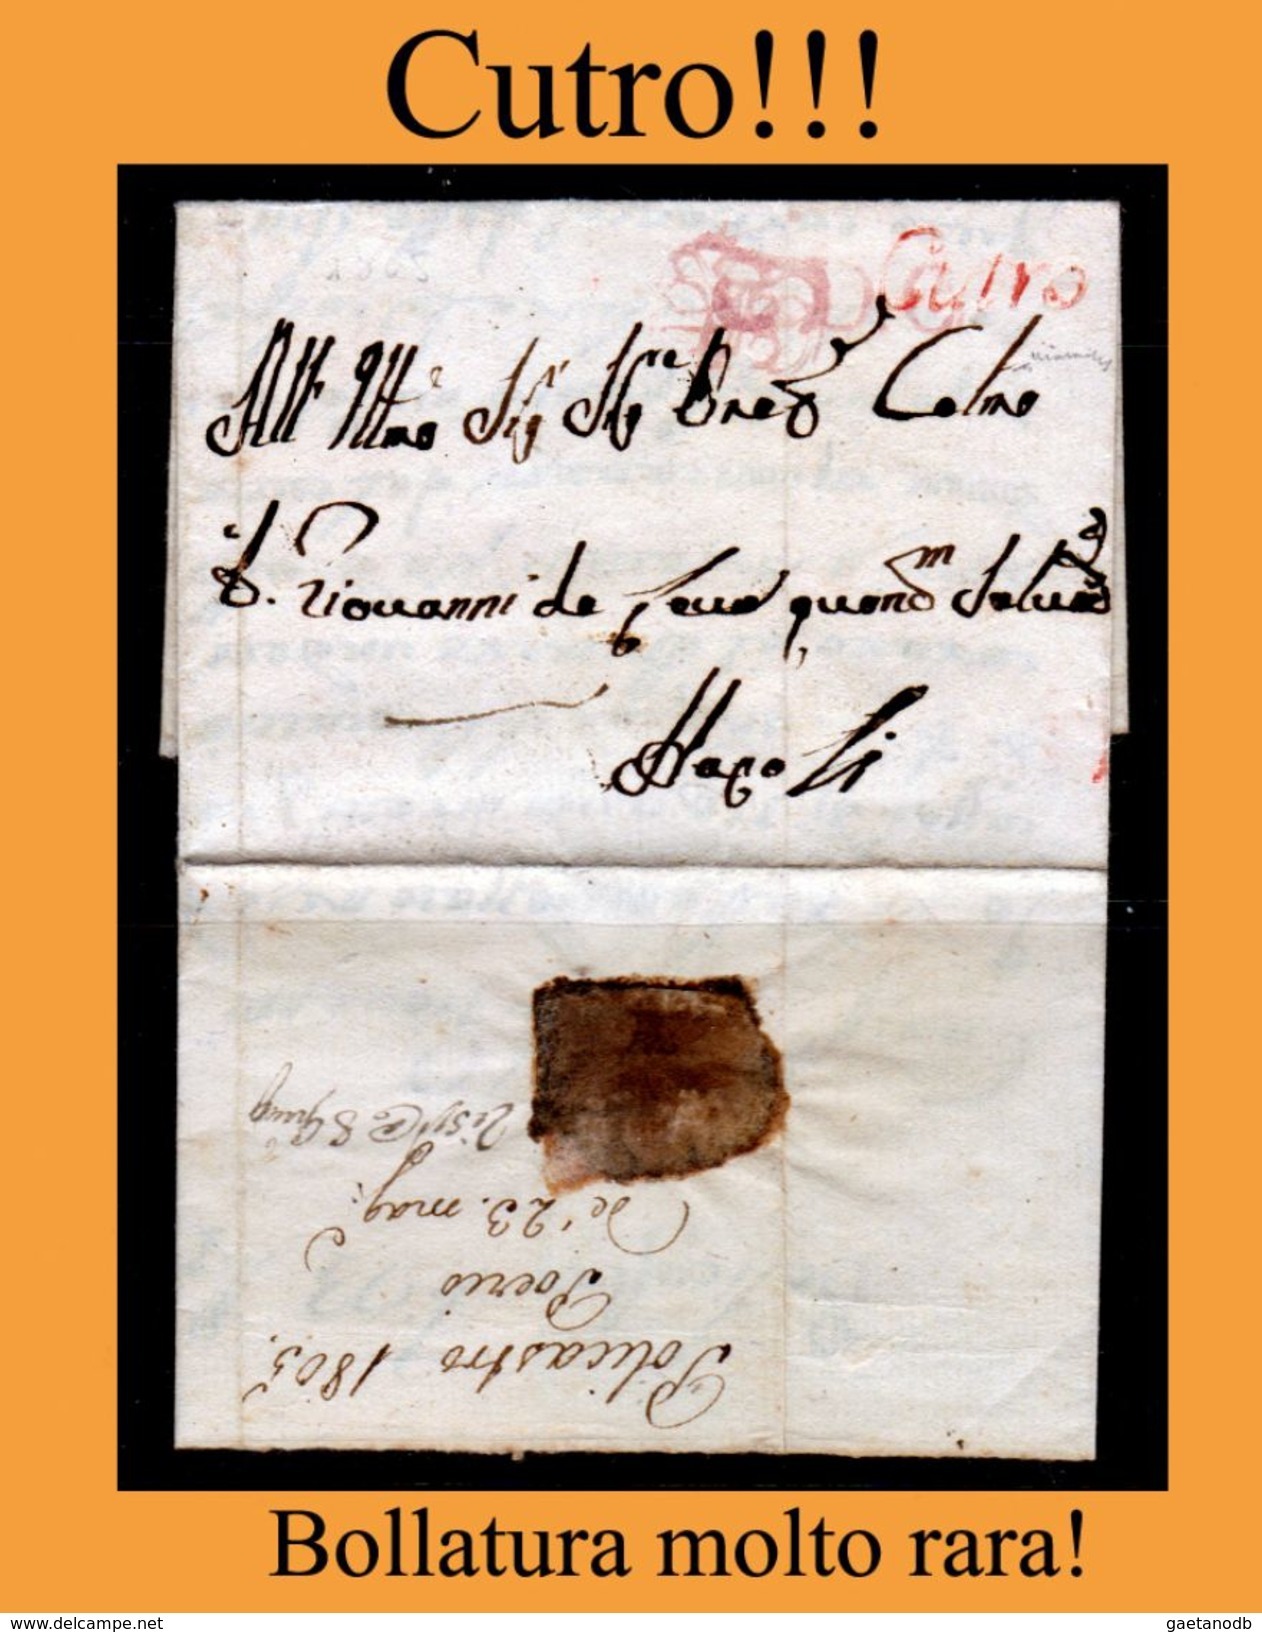 Cutro!!!
Cutro
All' Ill.mo Sig.r Sig.re
D. Giovanni de quond.m
Napoli
Policastro 1805.
Poerio
De' 23. mag:
Bollatura molto rara!
www.delcampe.net
gaetanodb